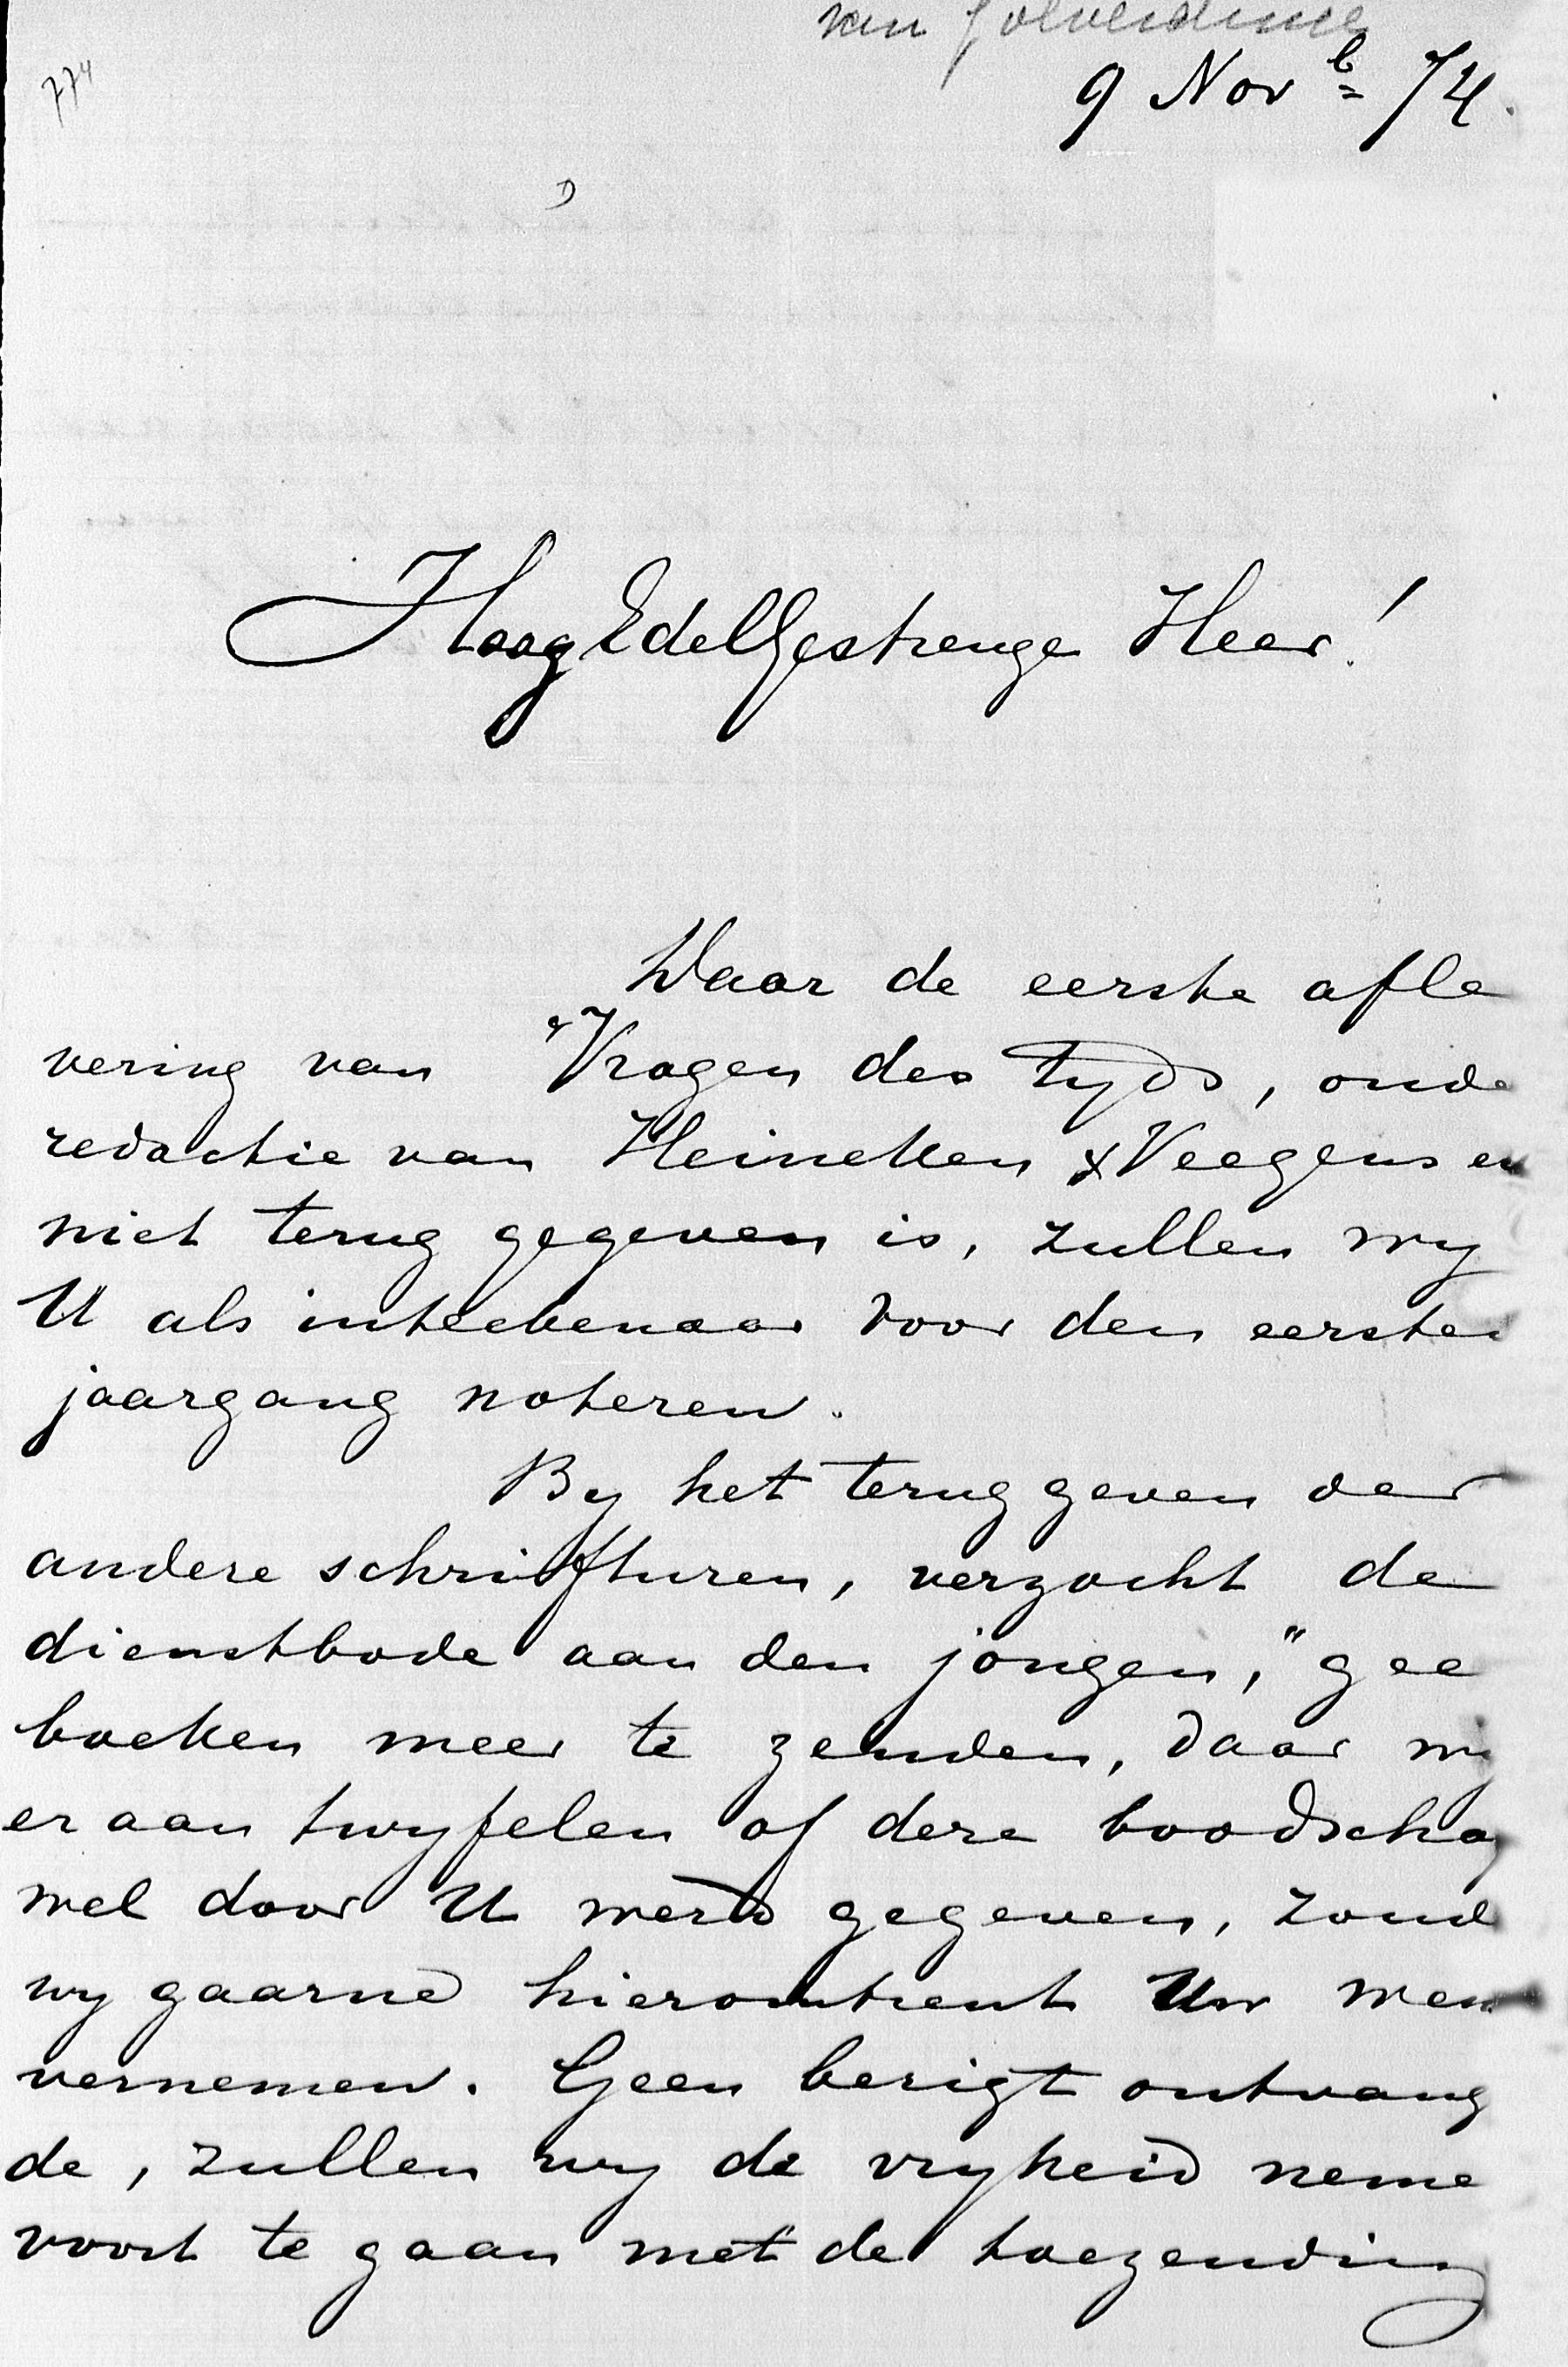 van
774
9 Novb 74.
HoogEdelGestrenge Heer!
Waar de eerste afle
vering van "Vragen des tyds, onde
redactie van Heineken & Veegens en
niet terug gegeven is, zullen wy
U als inteekenaar voor den eersten
jaargang noteren.
By het terug geven der
andere schrifturen, verzocht de
dienstbode aan den jongen, "gee
boeken meer te zenden, daar wy
er aan twyfelen of deze boodschap
wel door U werd gegeven, zoud
wy gaarne hieromtrent Uw wen
vernemen. Geen berigt ontvang
de, zullen wy de vryheid neme
voort te gaan met de toezending